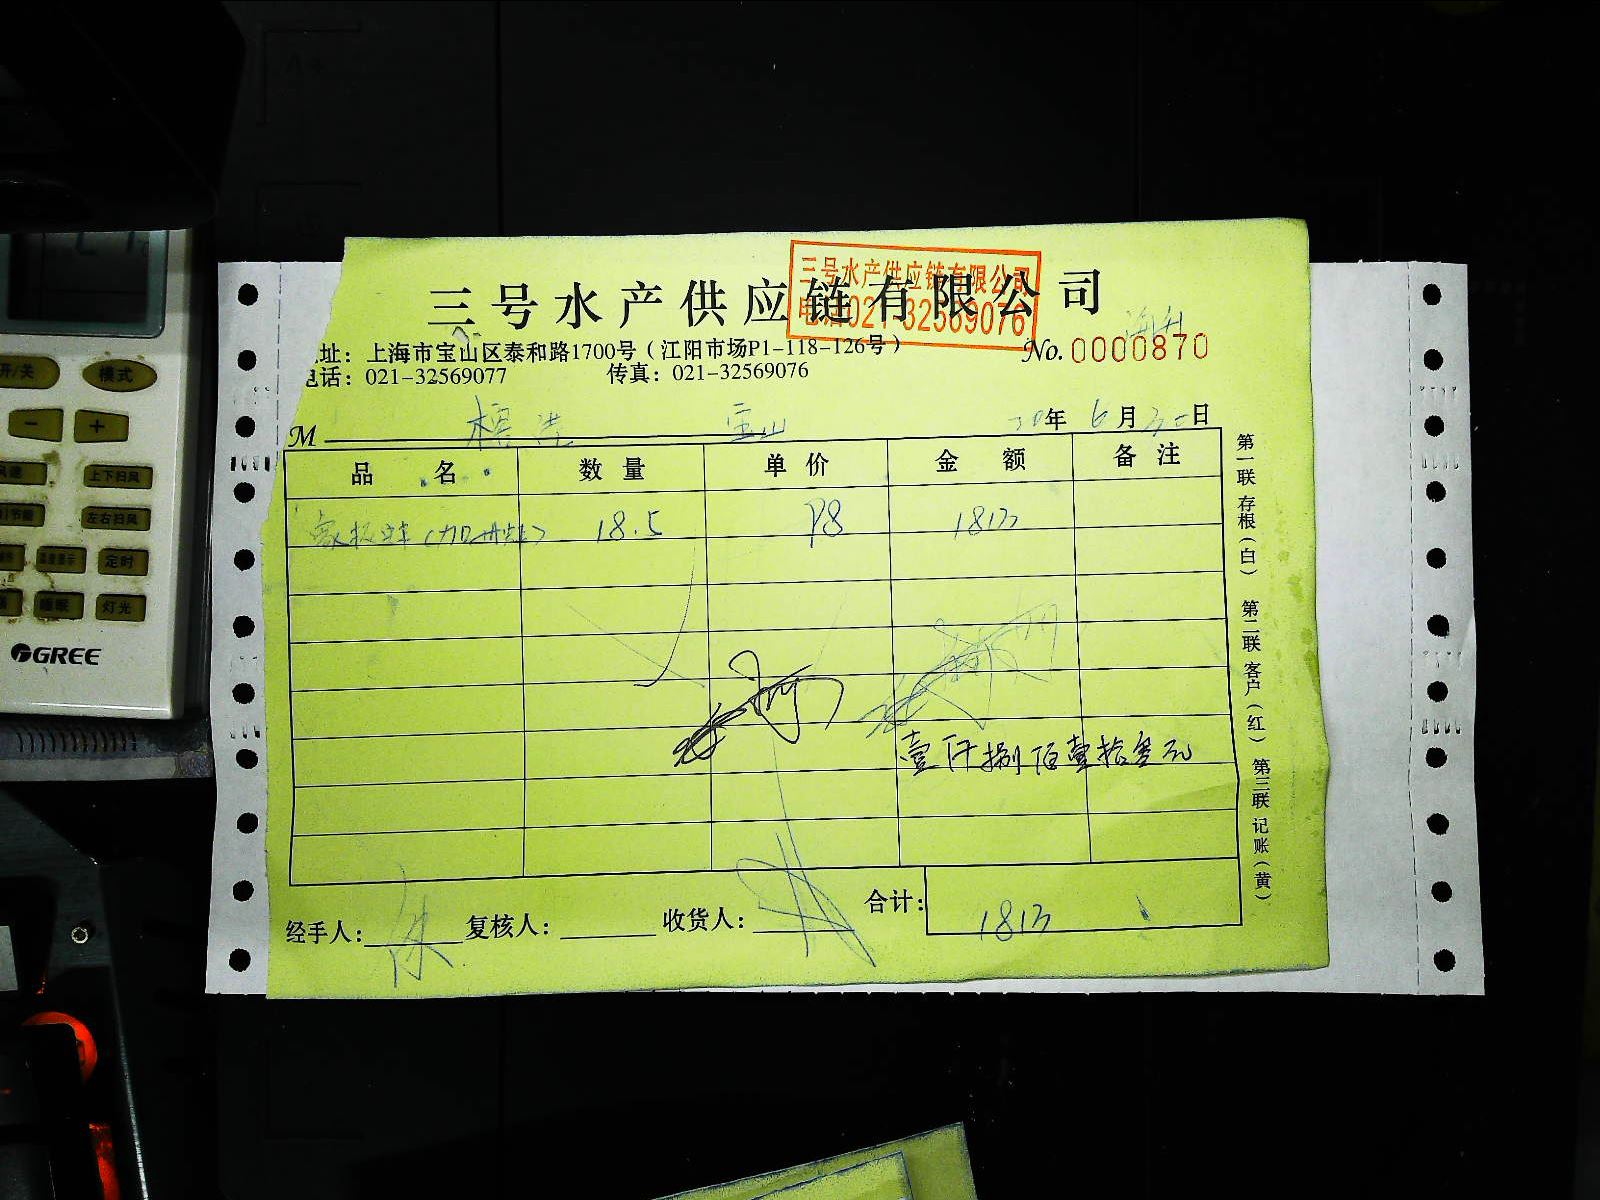 三号水产供应链有限公司
三号水产供应链有限公司
电话021-32569076
址：上海市宝山区泰和路1700号（江阳市场P1-118-126号）
No.0000870
电话：021-32569077 传真：021-32569076
M 宝山 20年6月30日
品名 数量 单价 金额 备注
18.5 98 1813
壹仟捌佰壹拾叁元
合计： 1813
经手人： 复核人： 收货人：
第一联 存根（白） 第二联 客户（红） 第三联 记账（黄）
开/关 模式
- +
上下扫风
左右扫风
定时
睡眠 灯光
GREE